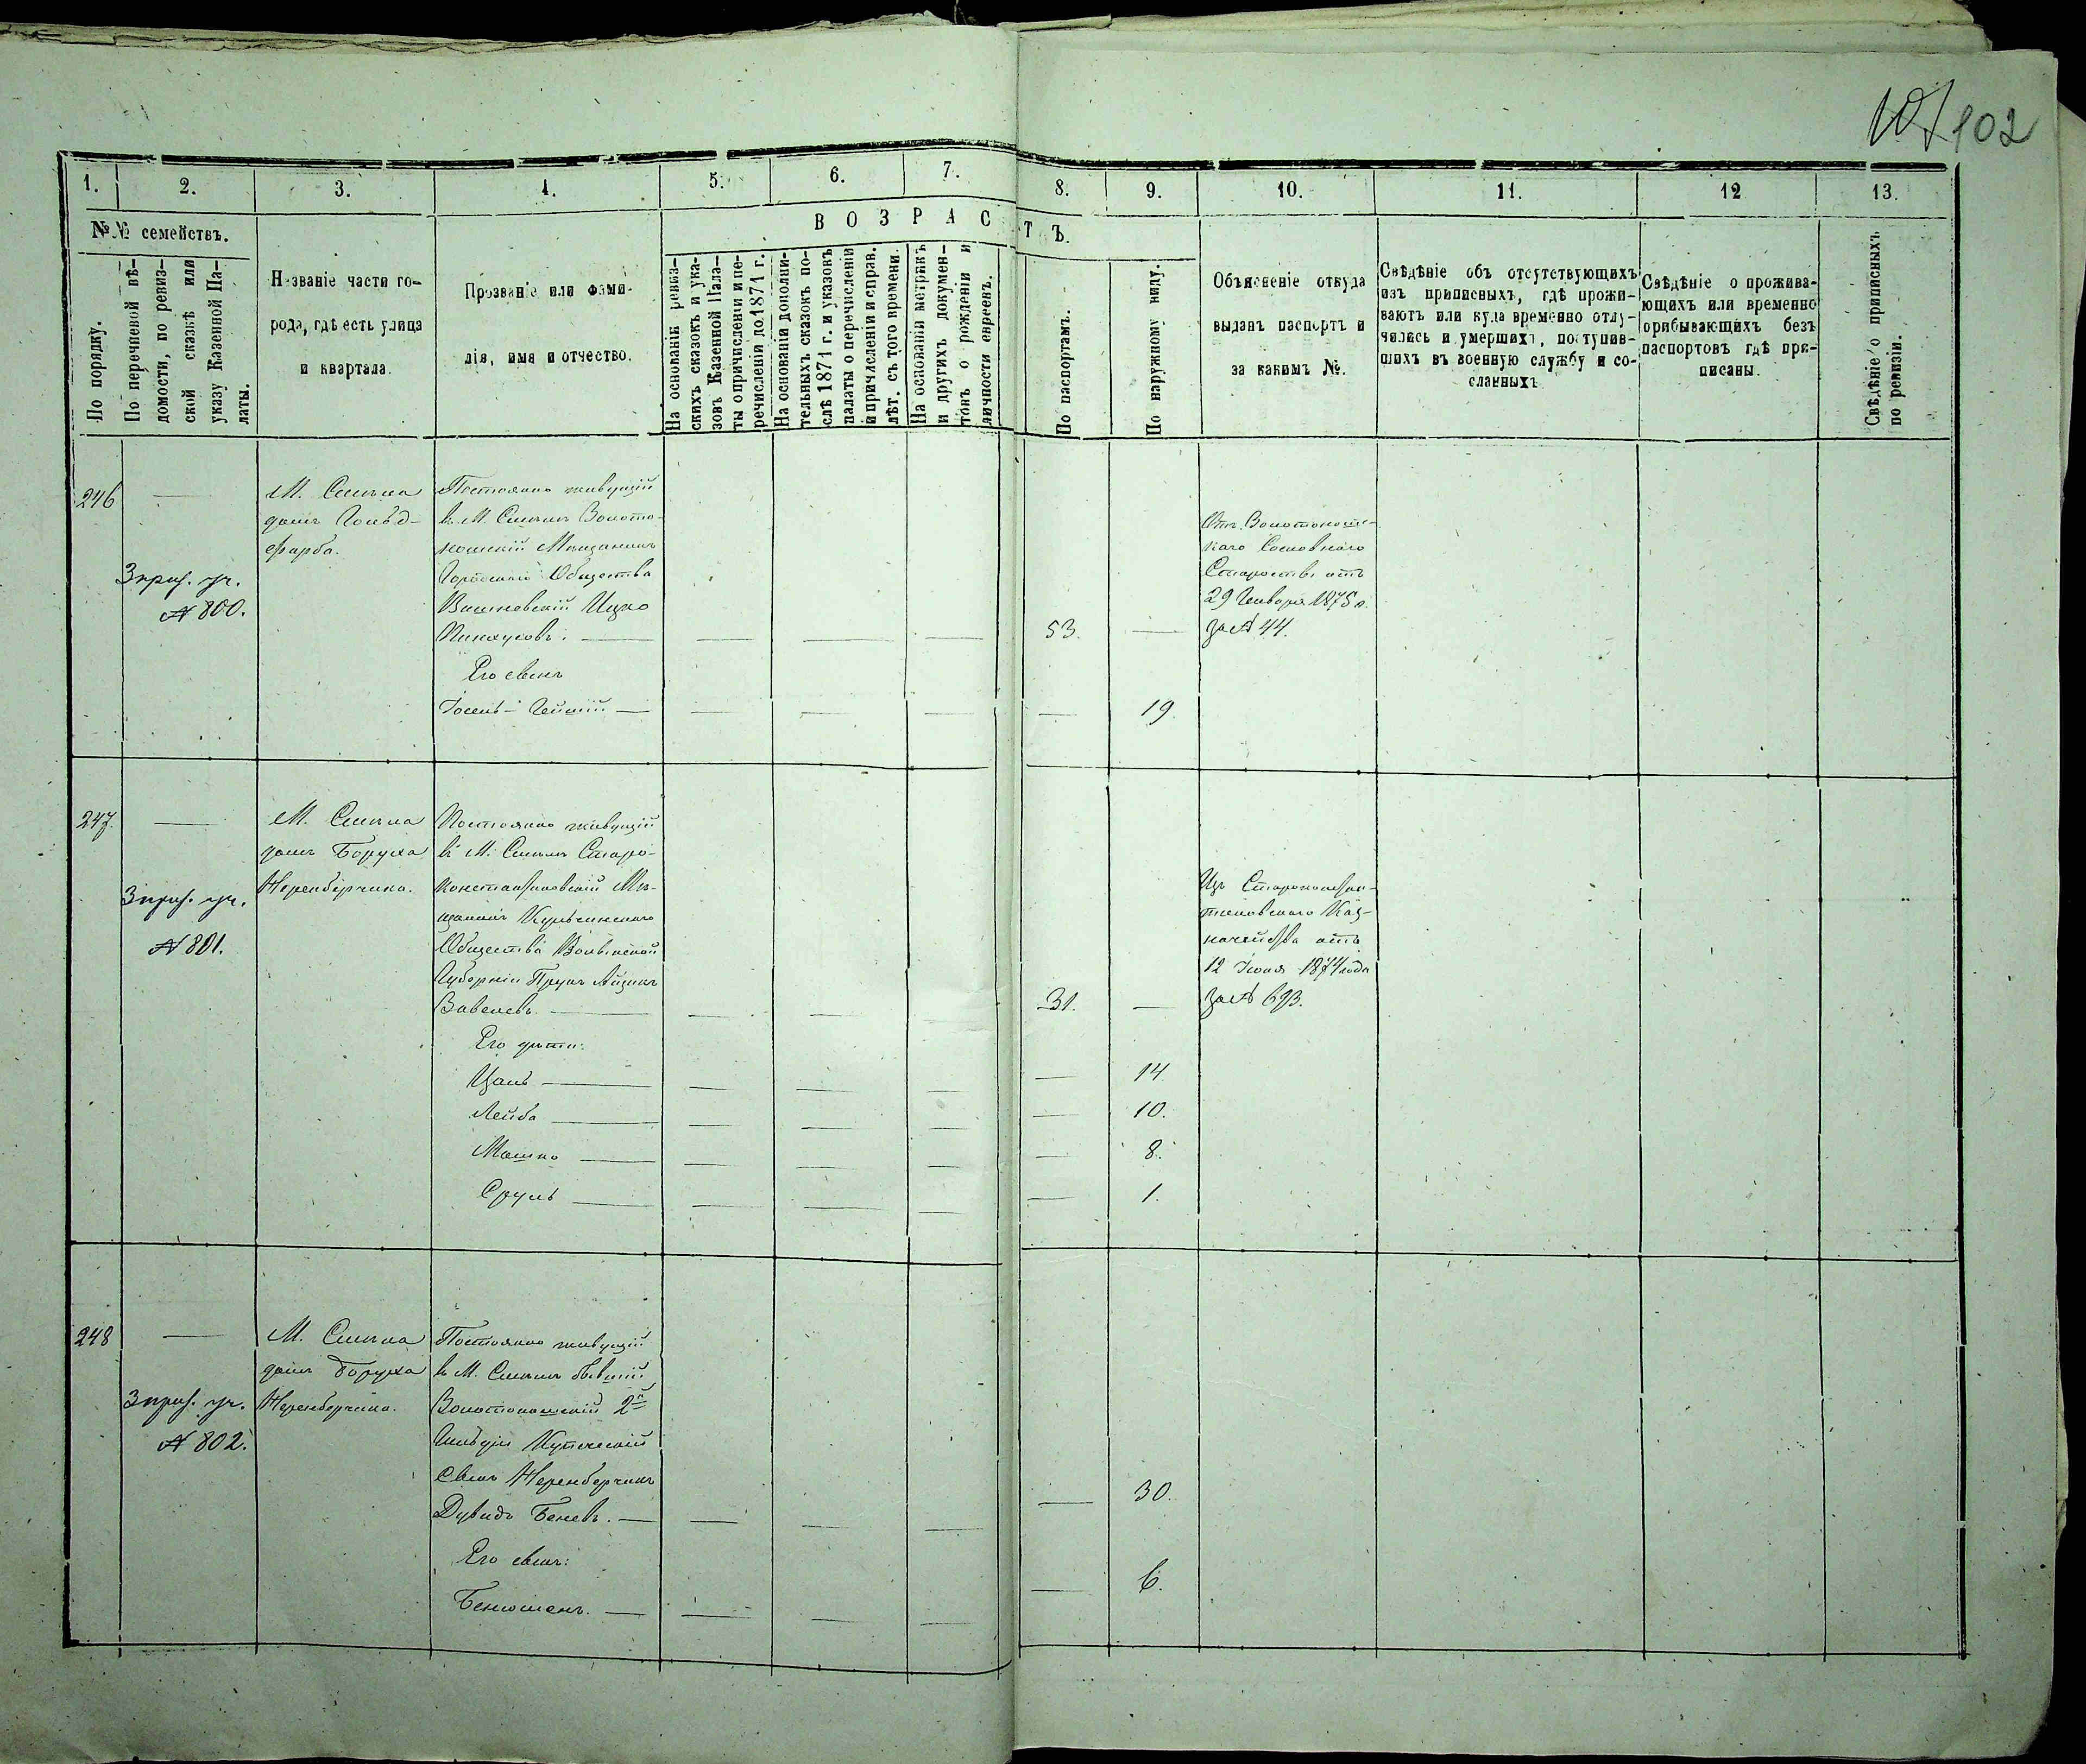 107 102
1. 2. 3. 4. 5. 6. 7. 8. 9. 10. 11. 12 13.
№№ семействъ.
По порядку.
По перечневой вѣ-
домости, по ревиз-
ской сказкѣ или
указу Казенной Па-
латы.
Названіе части го-
рода, гдѣ есть улица
и квартала.
Прозваніе или фами-
лія, имя и отчество.
ВОЗРАСТЪ.
На основаніи ревиз-
скихъ сказокъ и ука-
зовъ Казенной Пала-
ты о причисленіи и пе-
речисленіи до 1871 г.
На основаніи дополни-
тельныхъ сказокъ по-
слѣ 1871 г. и указовъ
палаты о перечисленіи
и причисленіи и справ.
лѣт. съ того времени.
На основаніи метрикъ
и другихъ докумен-
товъ о рожденіи и
личности евреевъ.
По паспортамъ.
По наружному виду.
Объясненіе откуда
выданъ паспортъ и
за какимъ №.
Свѣдѣніе объ отсутствующихъ
изъ приписныхъ, гдѣ прожи-
ваютъ или куда временно отлу-
чились и умершихъ, поступив-
шихъ въ военную службу и со-
сланныхъ
Свѣдѣніе о прожива-
ющихъ или временно
прибывающихъ безъ
паспортовъ гдѣ при-
писаны.
Свѣдѣніе о приписныхъ
по ревизіи.
246
3 приз. уч.
№ 800.
М. Смѣла
домъ Гольд-
фарба.
Постоянно живущій
въ М. Смѣлѣ Золото-
ношскій Мѣщанинъ
Городскаго Общества
Вишневскій Ицко
Пинхусовъ.
Его сынъ
Іосель-
53.
19
Отъ Золотонош-
скаго Сословнаго
Старосты отъ
29 Января 1875 г.
за № 44.
247.
3 приз. уч.
№ 801.
М. Смѣла
домъ Боруха
Неренбурчика.
Постоянно живущій
въ М. Смѣлѣ Старо-
константиновскій Мѣ-
щанинъ Кульчинскаго
Общества Волынской
Губерніи Айзикъ
Вавелевъ.
Его дѣти:
Лейба
Мошко
Сруль
31.
14
10.
8.
1.
Изъ Староконстан-
тиновскаго Каз-
начейства отъ
12 Іюня 1874 года
за № 693.
248
3 приз. уч.
№ 802.
М. Смѣла
домъ Боруха
Неренберчика.
Постоянно живущій
въ М. Смѣлѣ бывшій
Золотоношскій 2й
Гильдіи Купеческій
сынъ Неренберчикъ
Дувидъ Беневъ.
Его сынъ:
Беньюменъ.
30.
6.